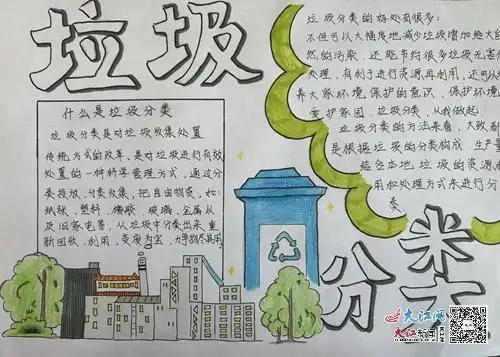 垃圾
什么是垃圾分类
垃圾分类是对垃圾收集处置
传统方式的改革，是对垃圾进行有效
处置的一种科学管理方式，通过分
类投放、分类收集，把自由物资，如：
纸张、塑料、橡胶、玻璃、金属以
及旧家电等，从垃圾中分类出来，重
新回收、利用，变废为宝，力争物尽其用
垃圾分类的好处有很多：
不但可以大幅度地减少垃圾增加给大自
然的污染，还能节约很多垃圾无害化
处理，有利于进行资源再利用，还可以培
养大家环境保护的意识，保护环境
爱护家园，垃圾分类，从我做起。
垃圾分类的方法来看，大致都
是根据垃圾的分类构成、生产量
结合本地垃圾的资源利
用和处理方式来进行分
类
分类
大江网
大江新闻